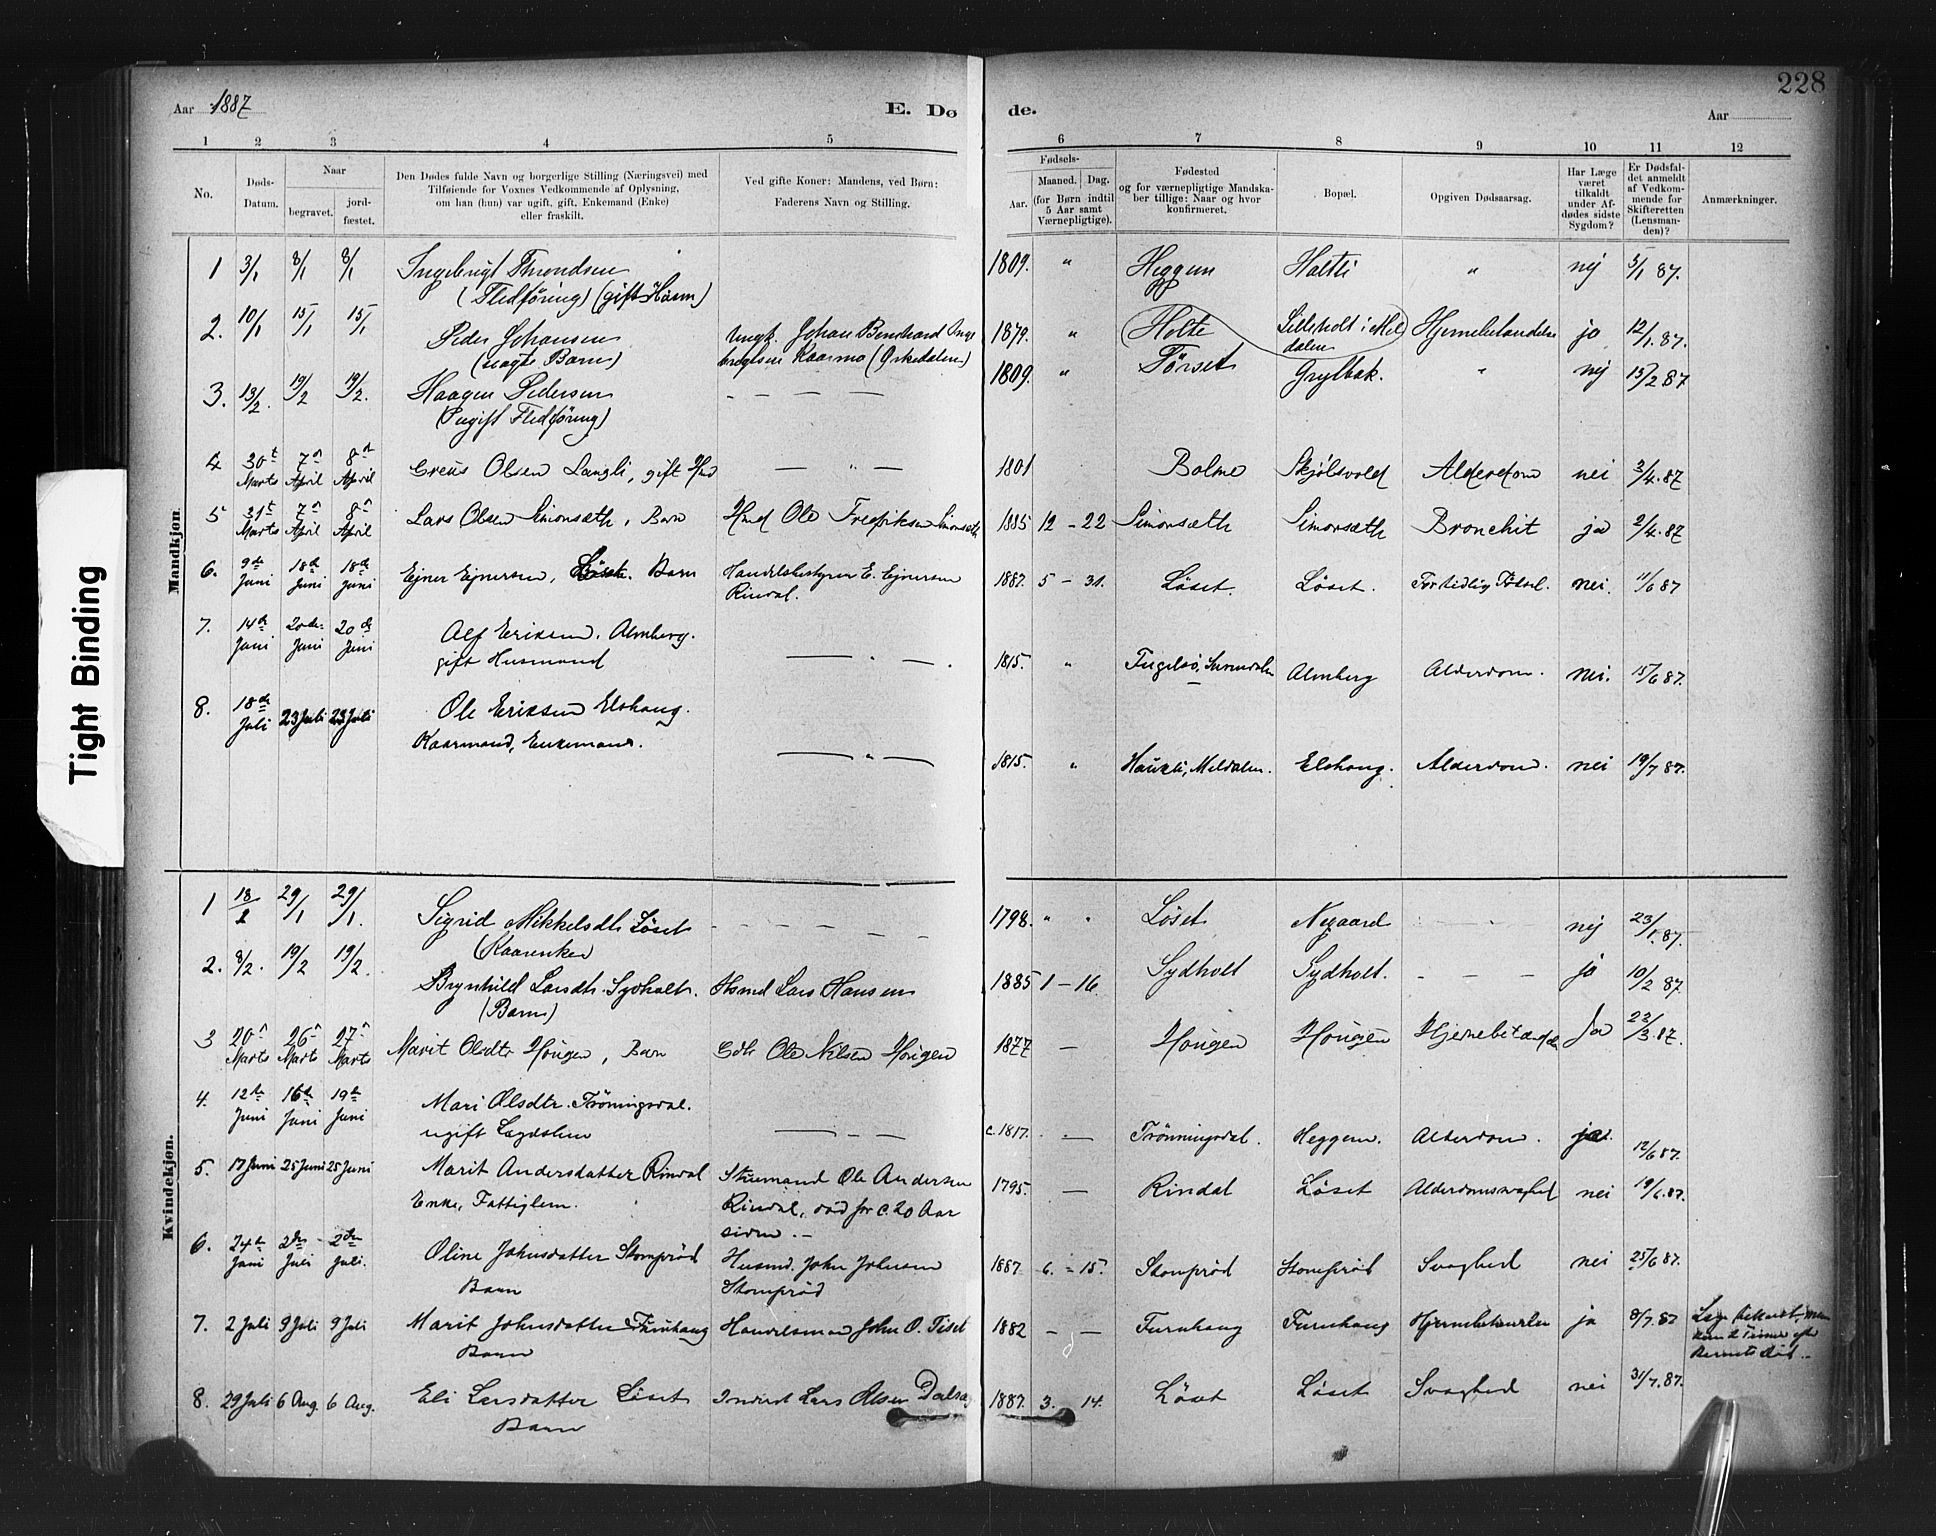 228
Aar 1887
E. Dø
de.
Aar
1 2 3 4 5 6 7 8 9 10 11 12
No.
Døds-
Datum.
Naar
begravet.
jord-
fæstet.
Den Dødes fulde Navn og borgerlige Stilling (Næringsvei) med
Tilføiende for Voxnes Vedkommende af Oplysning,
om han (hun) var ugift, gift, Enkemand (Enke)
eller fraskilt.
Ved gifte Koner: Mandens, ved Børn:
Faderens Navn og Stilling.
Fødsels-
Aar.
Maaned.
Dag.
(for Børn indtil
5 Aar samt
Værnepligtige).
Fødested
og for værnepligtige Mandska-
ber tillige: Naar og hvor
konfirmeret.
Bopæl.
Opgiven Dødsaarsag.
Har Læge
været
tilkaldt
under Af-
dødes sidste
Sygdom?
Er Dødsfal-
det anmeldt
af Vedkom-
mende for
Skifteretten
(Lensman-
den)?
Anmærkninger.
Mandkjøn
1 3/1 8/1 8/1 Ingebrigt Throndsen 1809. " Heggem Holtli " nej 5/1 87.
(Fledføring) (gift Hosm)
2. 10/1 15/1 15/1 Peder Johansen Ungk. Johan Berndhard Inge 1879. " Holte Lilleholt i Mel jo 12/1.87.
(uægte Barn) brigtsen Kaarmo (Orkedalen) dalen
3. 13/2. 19/2 19/2. Haagen Pedersen - - - - 1809. " Tørset Grytbak. " nej 15/2 87
(Ugift Fledføring)
4 30t Marts 7n April 8n April Olsen Langli, gift — " — 1801 Bolme Skjølsvold Alderdom nei 2/4.87
5 31t Marts 7n April 8n April Lars Olsen Simonsæth, Barn Ole Fredriksen Simonsæth 1885 12 - 22 Simonsæth Simonsæth Bronchit ja 2/4.87
6. 9de Juni 18de Juni 18de Juni Ejner Ejnersen, Barn Handelsbestyrer E. Ejnersen 1887. 5 - 31. Løset. Løset. For tidlig Fødsel. nei. 11/6 87
Rindal.
7. 14de Juni 20de Juni 20de Juni Alf Eriksen. Almberg. — " — 1815. " Fugelsø, Surendalen Almberg Alderdom. nei. 15/6 87.
gift Husmand
8. 18de Juli 23 Juli 23 Juli Ole Eriksen Elshaug. — " — 1815. " Meldalen. Elshaug. Alderdom. nei 19/7 87.
Kaarmand, Enkemand.
Kvindekjøn.
1 18/1 29/1 29/1. Sigrid Mikkelsdtr Løset - - - - - 1798. " " Løset Nygaard nej 23/1.87.
(Kaarenke)
2. 8/2. 19/2 19/2. Brynhild Larsdtr. Sydholt. Hsmd Lars Hansen 1885 1 - 16 Sydholt Sydholt. - - - jo 10/2 87.
(Barn)
3 20n Marts 26n Marts 27n Marts Marit Olsdtr Hougen, Barn Gdbr Ole Nilsen Hougen 1877 — Hougen Hougen Hjernebetændelse ja 22/3.87.
4. 12te Juni 16te Juni 19te Juni Mari Olsdtr. Trønningsdal. — - — c. 1817. — Trønningsdal. Heggem. Alderdom. ja. 12/6 87.
ugift Lægdslem
5. 17 Juni 25 Juni 25 Juni Marit Andersdatter Rindal Stuemand Ole Andersen 1795. — Rindal Løset Alderdomssvaghed nei 19/6.87.
Enke, Fattiglem. Rindal, død for c. 20 Aar
siden. -
6. 24te Juni 2den Juli 2den Juli. Oline Johnsdatter Stomprød Husmd. John Johnsen 1887 6. - 15. Stomprød Stomprød Svaghed nei 25/6 87.
Barn Stomprød
7. 2 Juli 9 Juli 9 Juli Marit Johnsdatter Furuhaug Handelsmand John O. Tiset 1882 — — Furuhaug Furuhaug Hjernebetændelse ja 8/7.87
Barn
8. 29 Juli 6 Aug. 6 Aug. Eli Larsdatter Løset Inderst Lars Olsen 1887. 3. 14. Løset Løset Svaghed nei 31/7.87.
Barn
Tight Binding